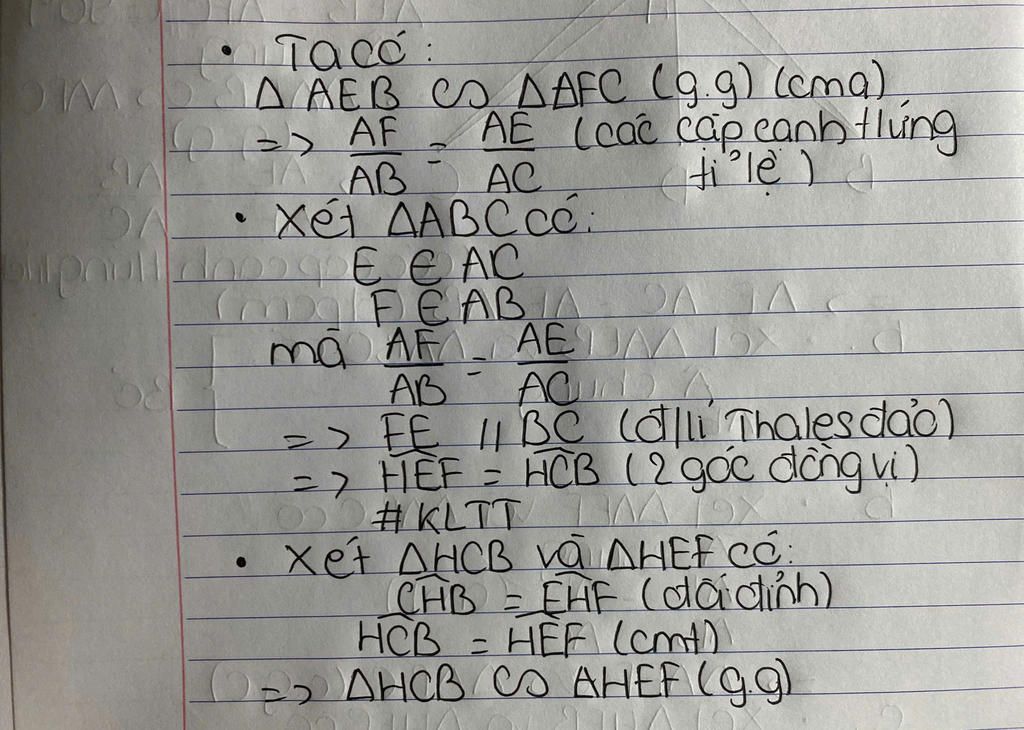 • Ta có:
Δ AEB ∽ ΔAFC (g.g) (cma)
=> AF/AB = AE/AC (các cặp cạnh tứng
tỉ lệ)
• Xét ΔABC có:
E ∈ AC
F ∈ AB
mà AF/AB = AE/AC
=> FE // BC (đ/lí Thales đảo)
=> HEF = HCB (2 góc đồng vị)
#KLTT
• Xét ΔHCB và ΔHEF có:
CHB = EHF (đối đỉnh)
HCB = HEF (cmt)
=> ΔHCB ∽ ΔHEF (g.g)